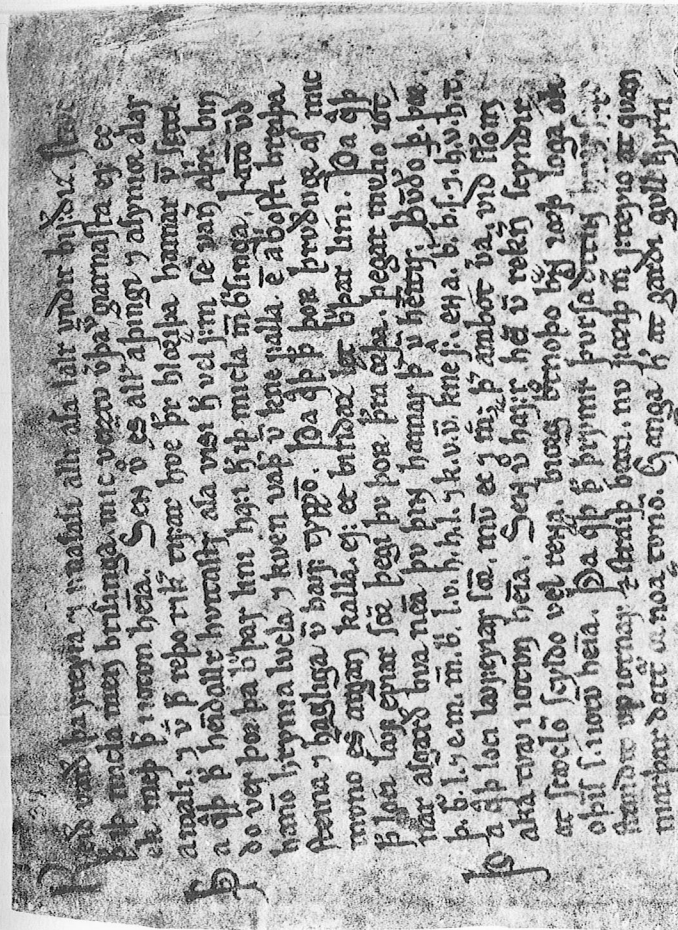 Reið varð þa freyia ⁊ fnasaþi allr asa salr vndir bifðiz. stꜹcc
þ iþ micla men brisinga. mic veiztv v̄þa v̄giarnasta ef ec
ek meþ þ̄ i iotvn heīa. Seɴ v° ęs allir aþingi ⁊ asynior allar
amali. ⁊ v̄ þ̄ reþo rik̄ tifar hve þr hloriþa hamar v̄ sętti.
Þa qþ þ heīdallr hvitastr asa vissi h̄ vel frām sē vaɴ aþr. biɴ
do ver þor þa b°þar lini hafi h̄ iþ micla m̄ brisinga. Latō vnd
hanō hrynia lvcla ⁊ kveɴ vaþ v̄ kne falla. ē abriosti breiþa
steina ⁊ hagliga v̄ hꜹfvþ typpō. Þa qþ þ þor þrvðvgr ass mic
mvno ęs argan kalla. ef ec bindaz lęt b°þar lini. Þa qþ
þ loci lꜹfeyiar sōr þegi þv þor þra orþa. þegar mvno iot
nar asgarð bva nēa þv þiɴ hamar þ̄ v̄ heītir. bvndo þ. þa.
þ. b. l. ⁊ e. m. m̄. b̄. l. v. h. h. l. ⁊ k. v. v̄. kne f. eɴ a. b. b. s. ⁊. h. v. h. t̄.
Þa qþ loci lꜹfeyiar sōr. mvn ec ⁊ m; þ̄ ambot va, við scōm
aka tvꜹ i iotvn heīa. Seɴ v° hafrar heī v̄ rekn̄ scyndir
at scꜹclō scyldo vel reɴa. biorg brotnoþo braɴ iorþ loga ok
oþiɴs s. iotō heīa. Þa qþ þ þrymr þvrsa drottiɴ
standit vp iotnar ⁊ straiþ becci. nv fǫriþ m̄ freyio at qvan
niarþar dott° or noatvnō. Ganga h̄ at garði gvll hyrn